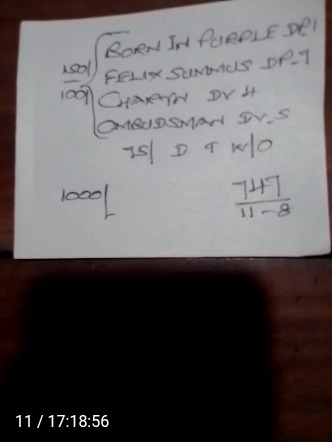 BORN IN PURPLE DP-1
150/ FELIX SUMMUS DP-7
100/ CHARYN DV 4
OMBUDSMAN DV-S
75/ D T W/O
1000/ 747
11-8
11 / 17:18:56